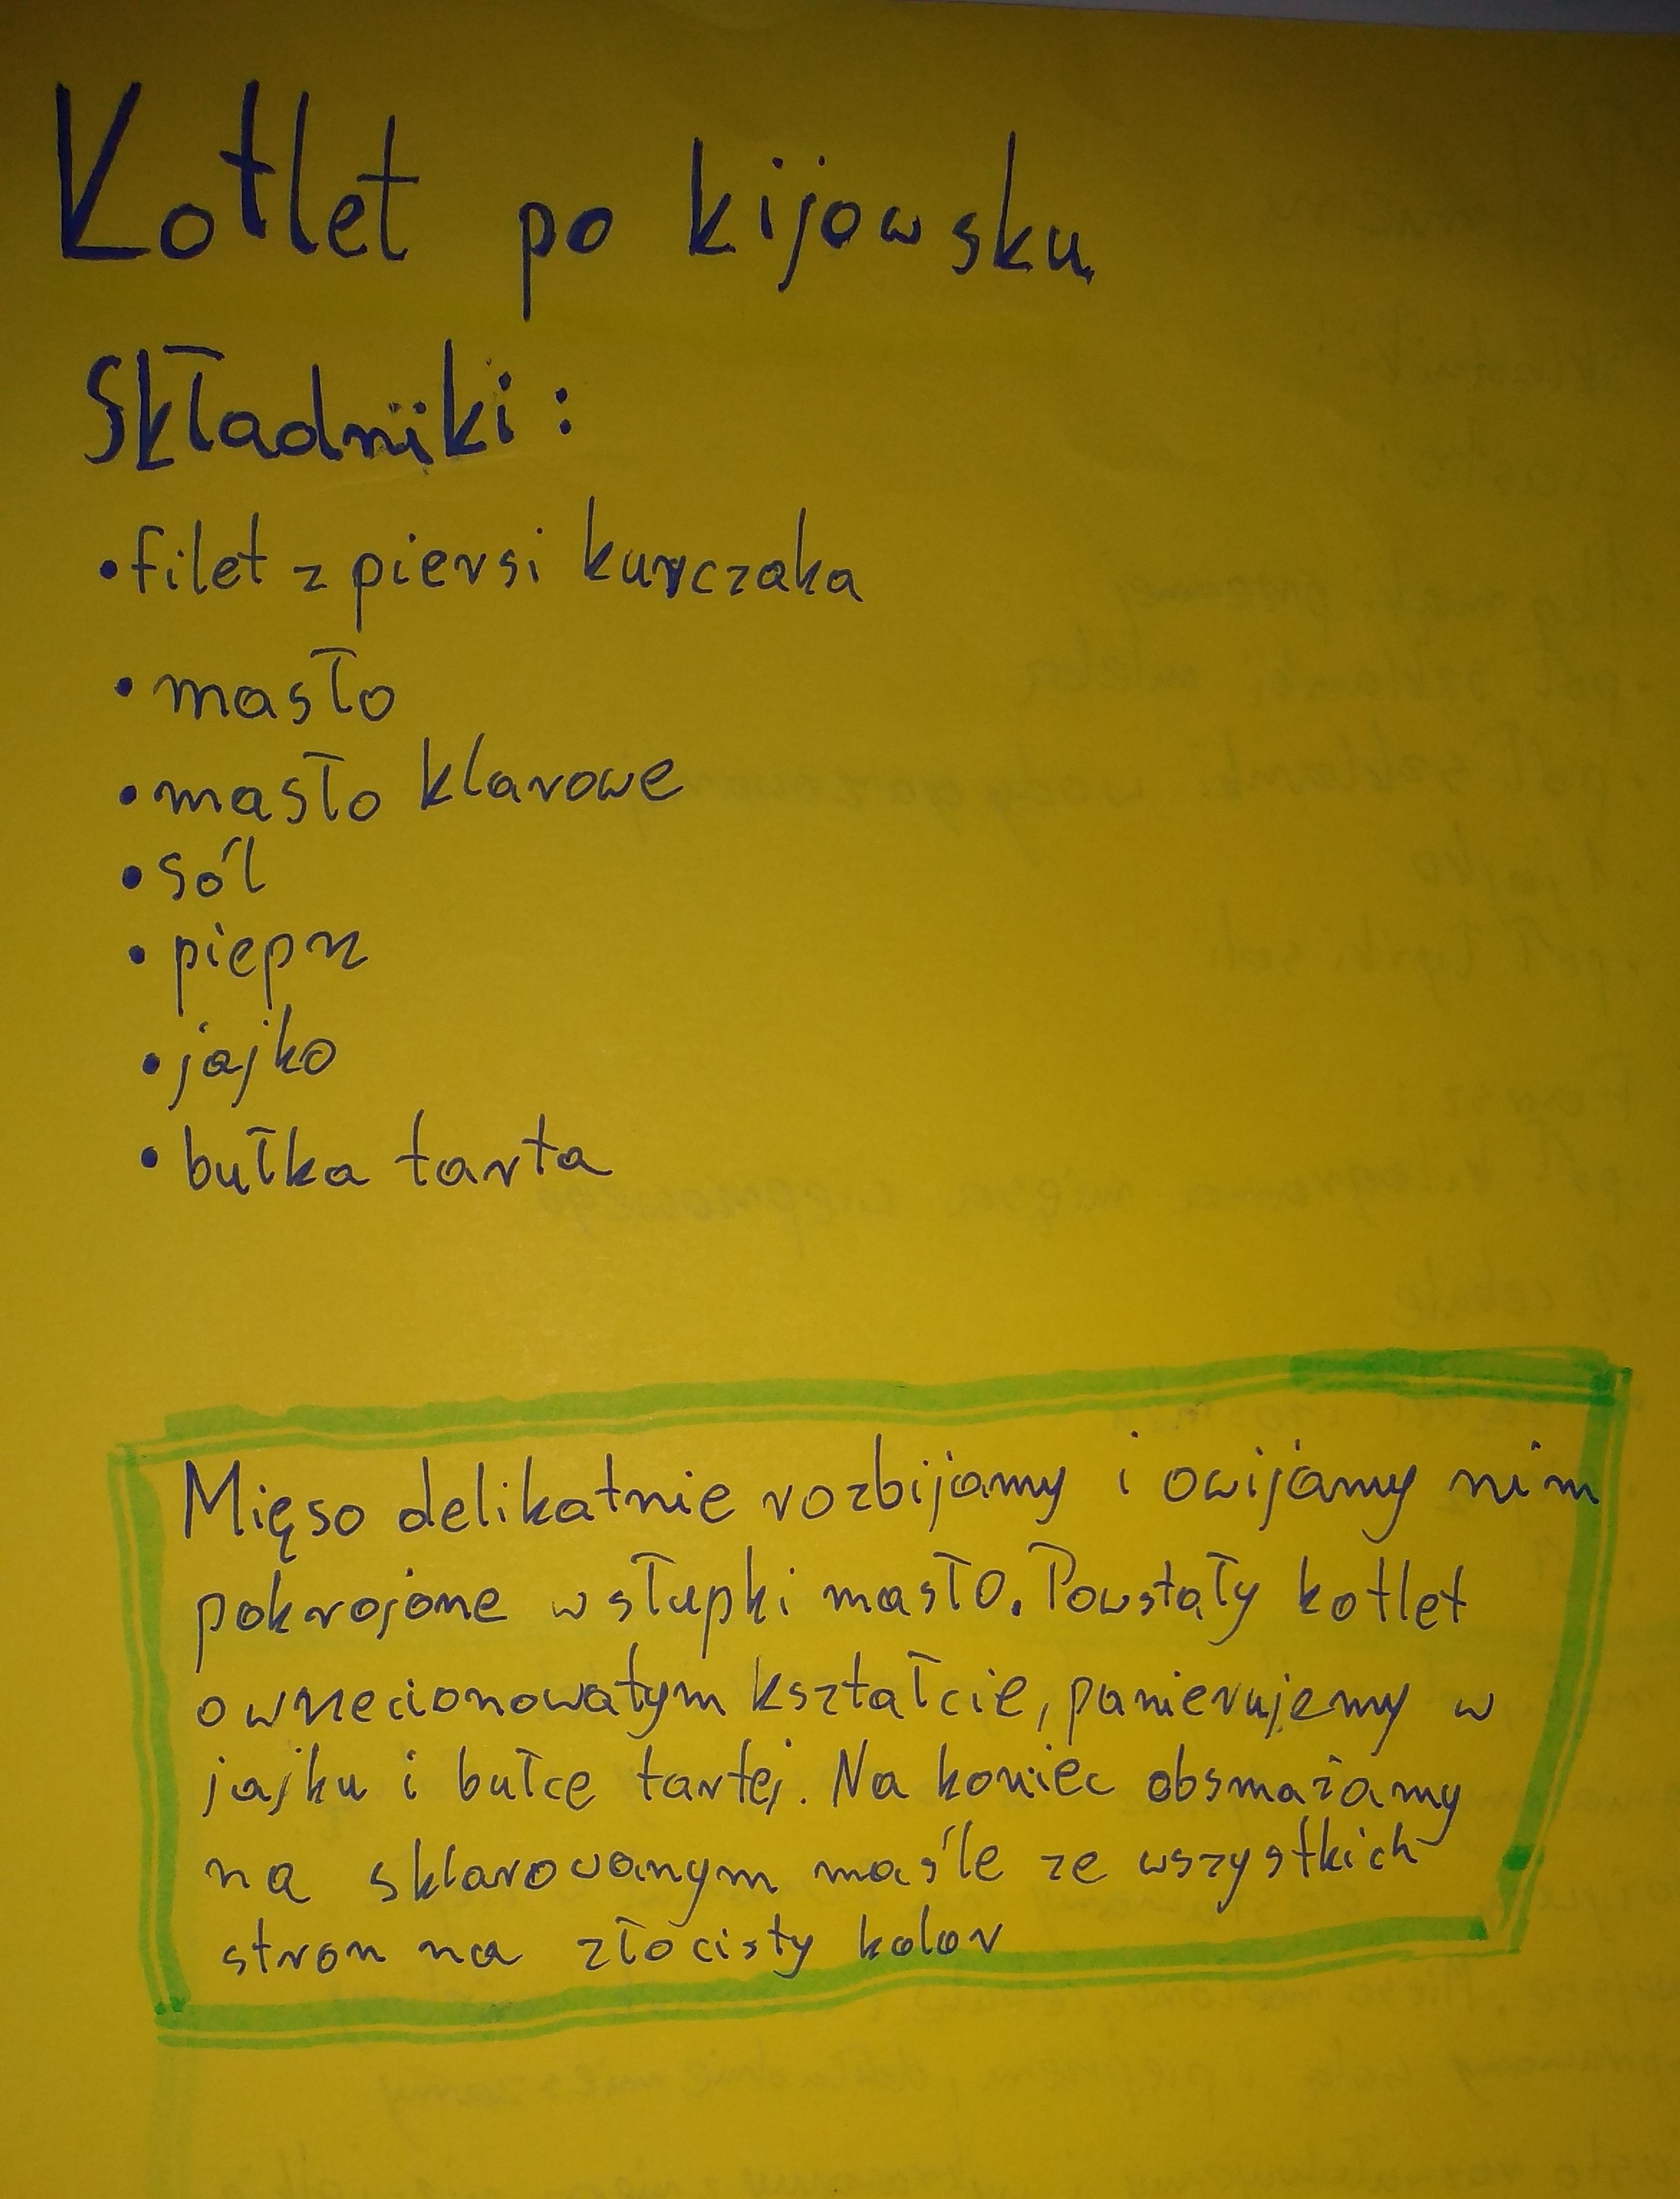 Kotlet po kijowsku
Składniki:
• filet z piersi kurczaka
• masło
• masło klarowe
• sól
• pieprz
• jajko
• bułka tarta
Mięso delikatnie rozbijamy i owijamy nim
pokrojone w słupki masło. Powstały kotlet
o wrzecionowatym kształcie, panierujemy w
jajku i bułce tartej. Na koniec obsmażamy
na sklarowanym maśle ze wszystkich
stron na złocisty kolor